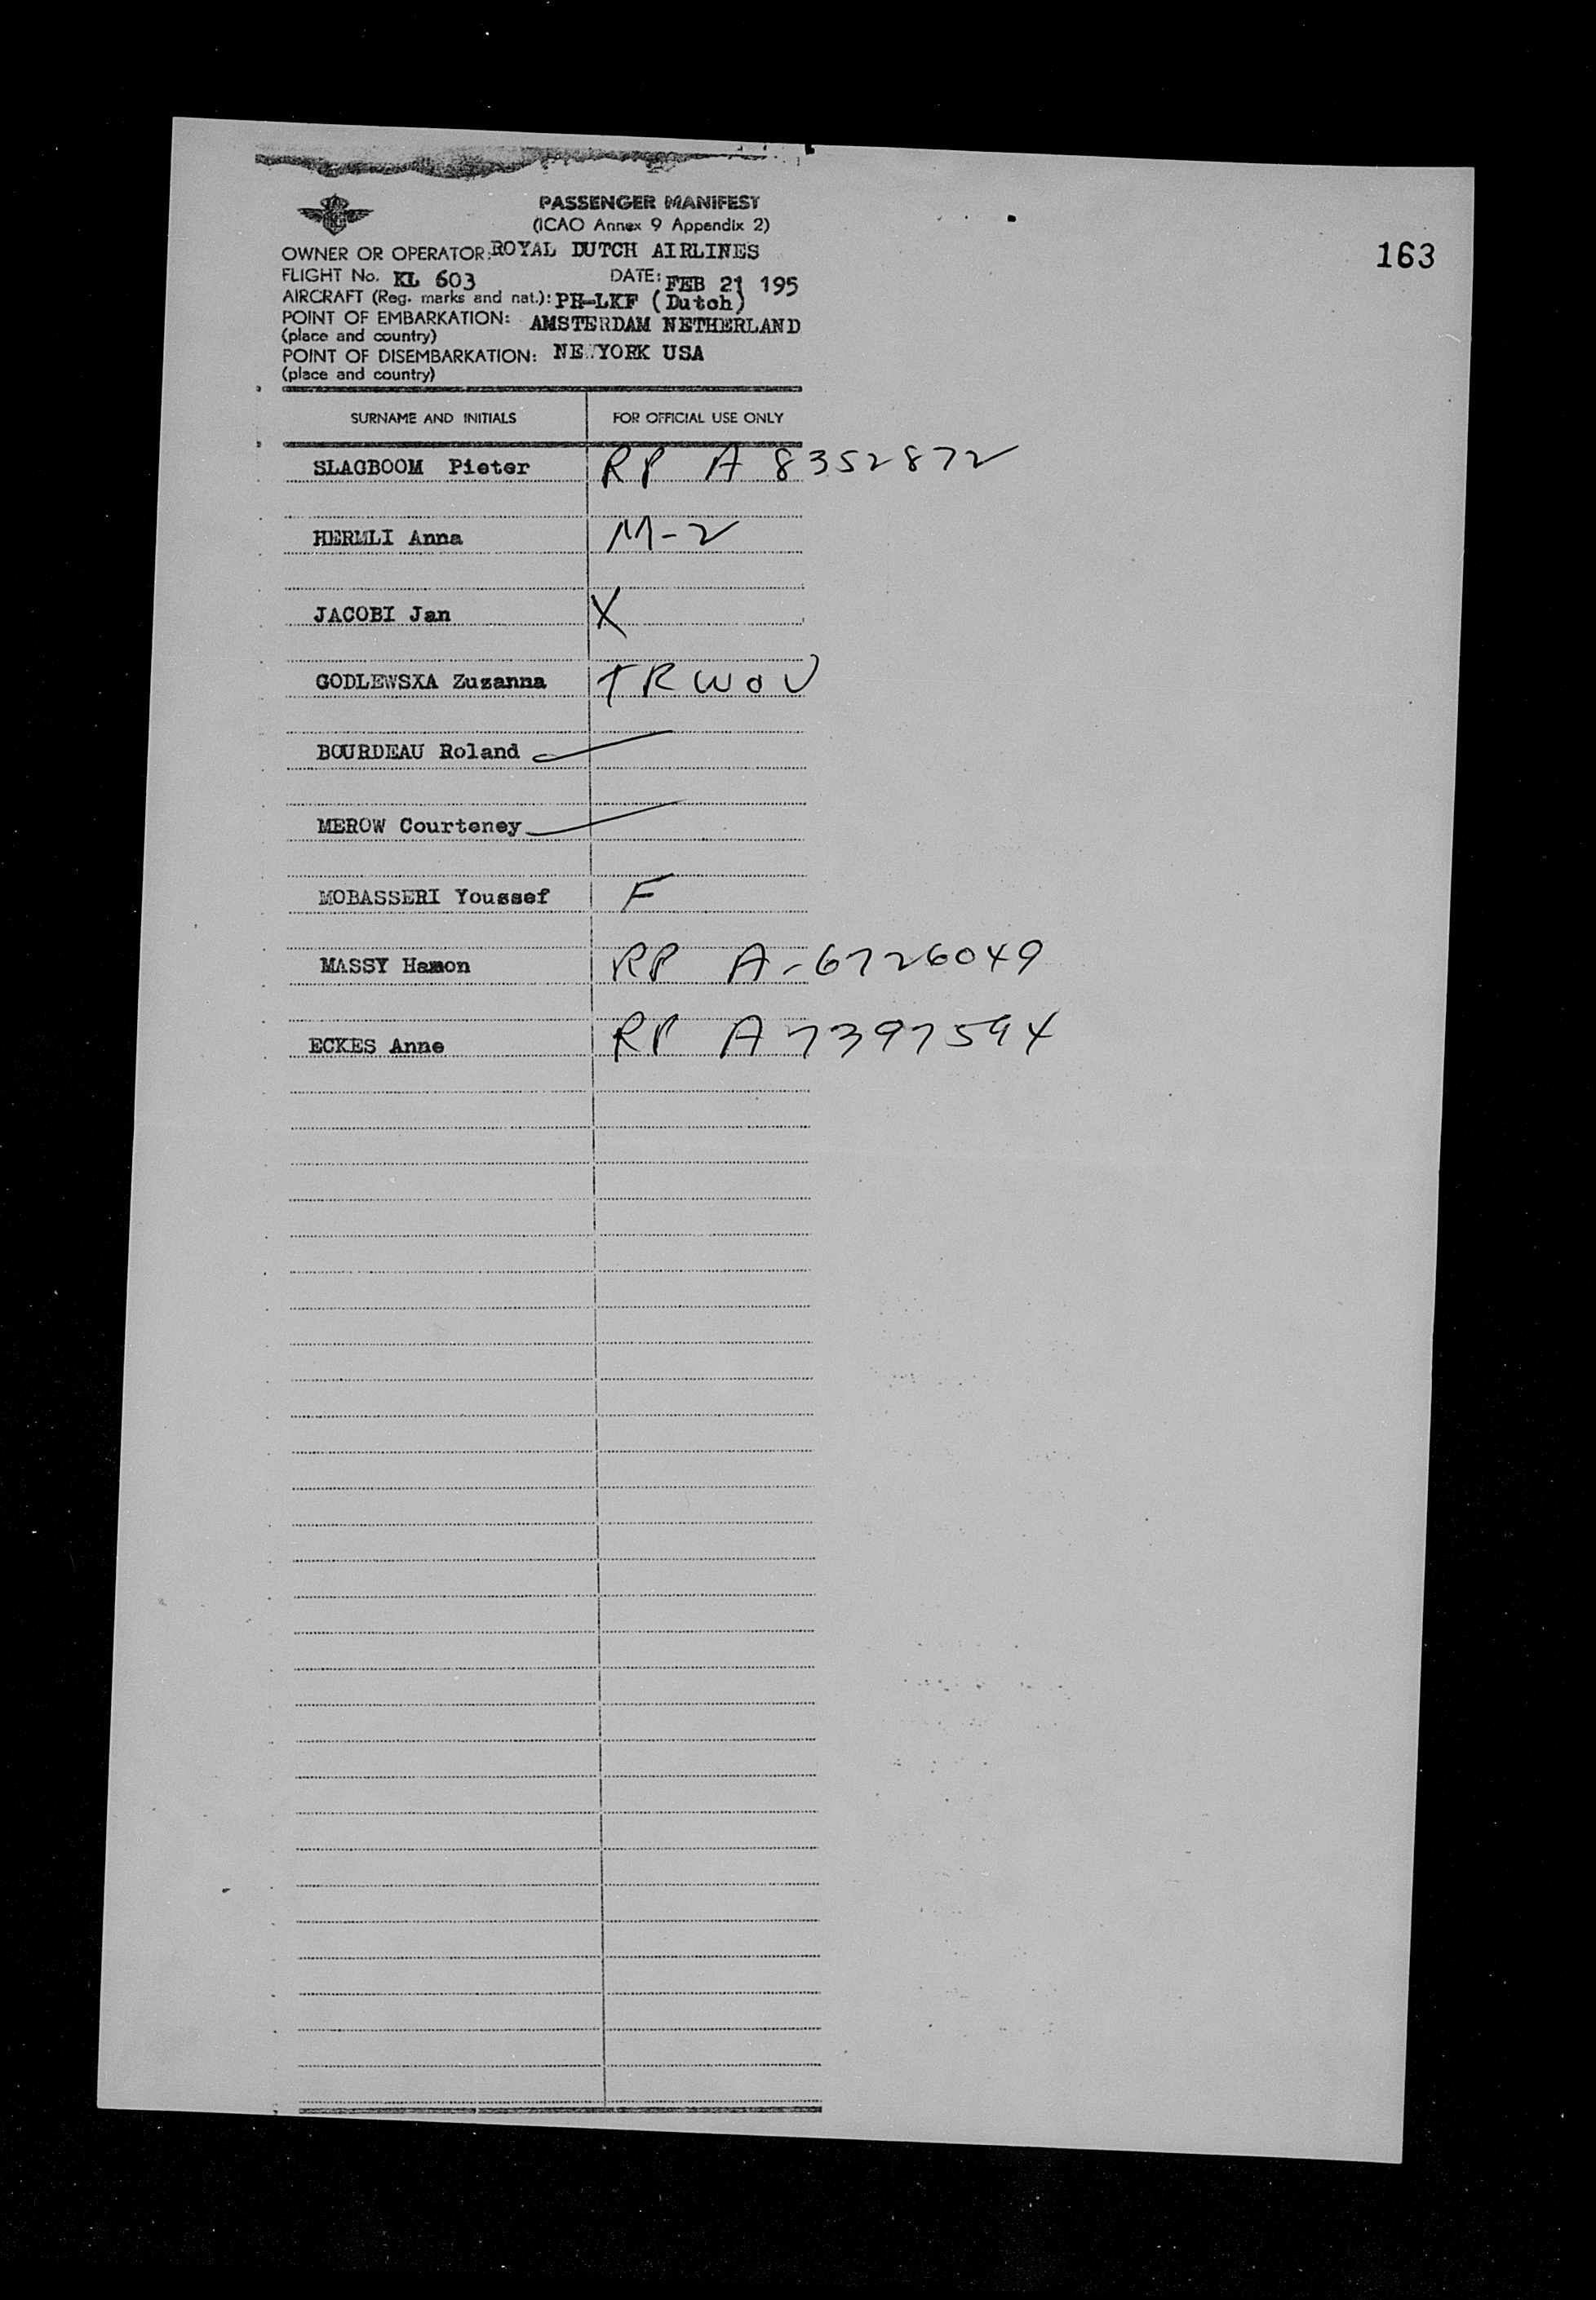 163
PASSENGER MANIFEST
(ICAO Annex 9 Appendix 2)
OWNER OR OPERATOR: ROYAL DUTCH AIRLINES
FLIGHT No. KL 603 DATE: FEB 21 195
AIRCRAFT (Reg. marks and nat.): PH-LKF (Dutch)
POINT OF EMBARKATION: AMSTERDAM NETHERLAND
(place and country)
POINT OF DISEMBARKATION: NE YORK USA
(place and country)
SURNAME AND INITIALS FOR OFFICIAL USE ONLY
SLAGBOOM Pieter RP A 8352872
HERMLI Anna M-2
JACOBI Jan X
GODLEWSKA Zuzanna TRWOV
BOURDEAU Roland
MEROW Courteney
MOBASSERI Youssef F
MASSY Hamon RP A-6726049
ECKES Anne RP A7397594